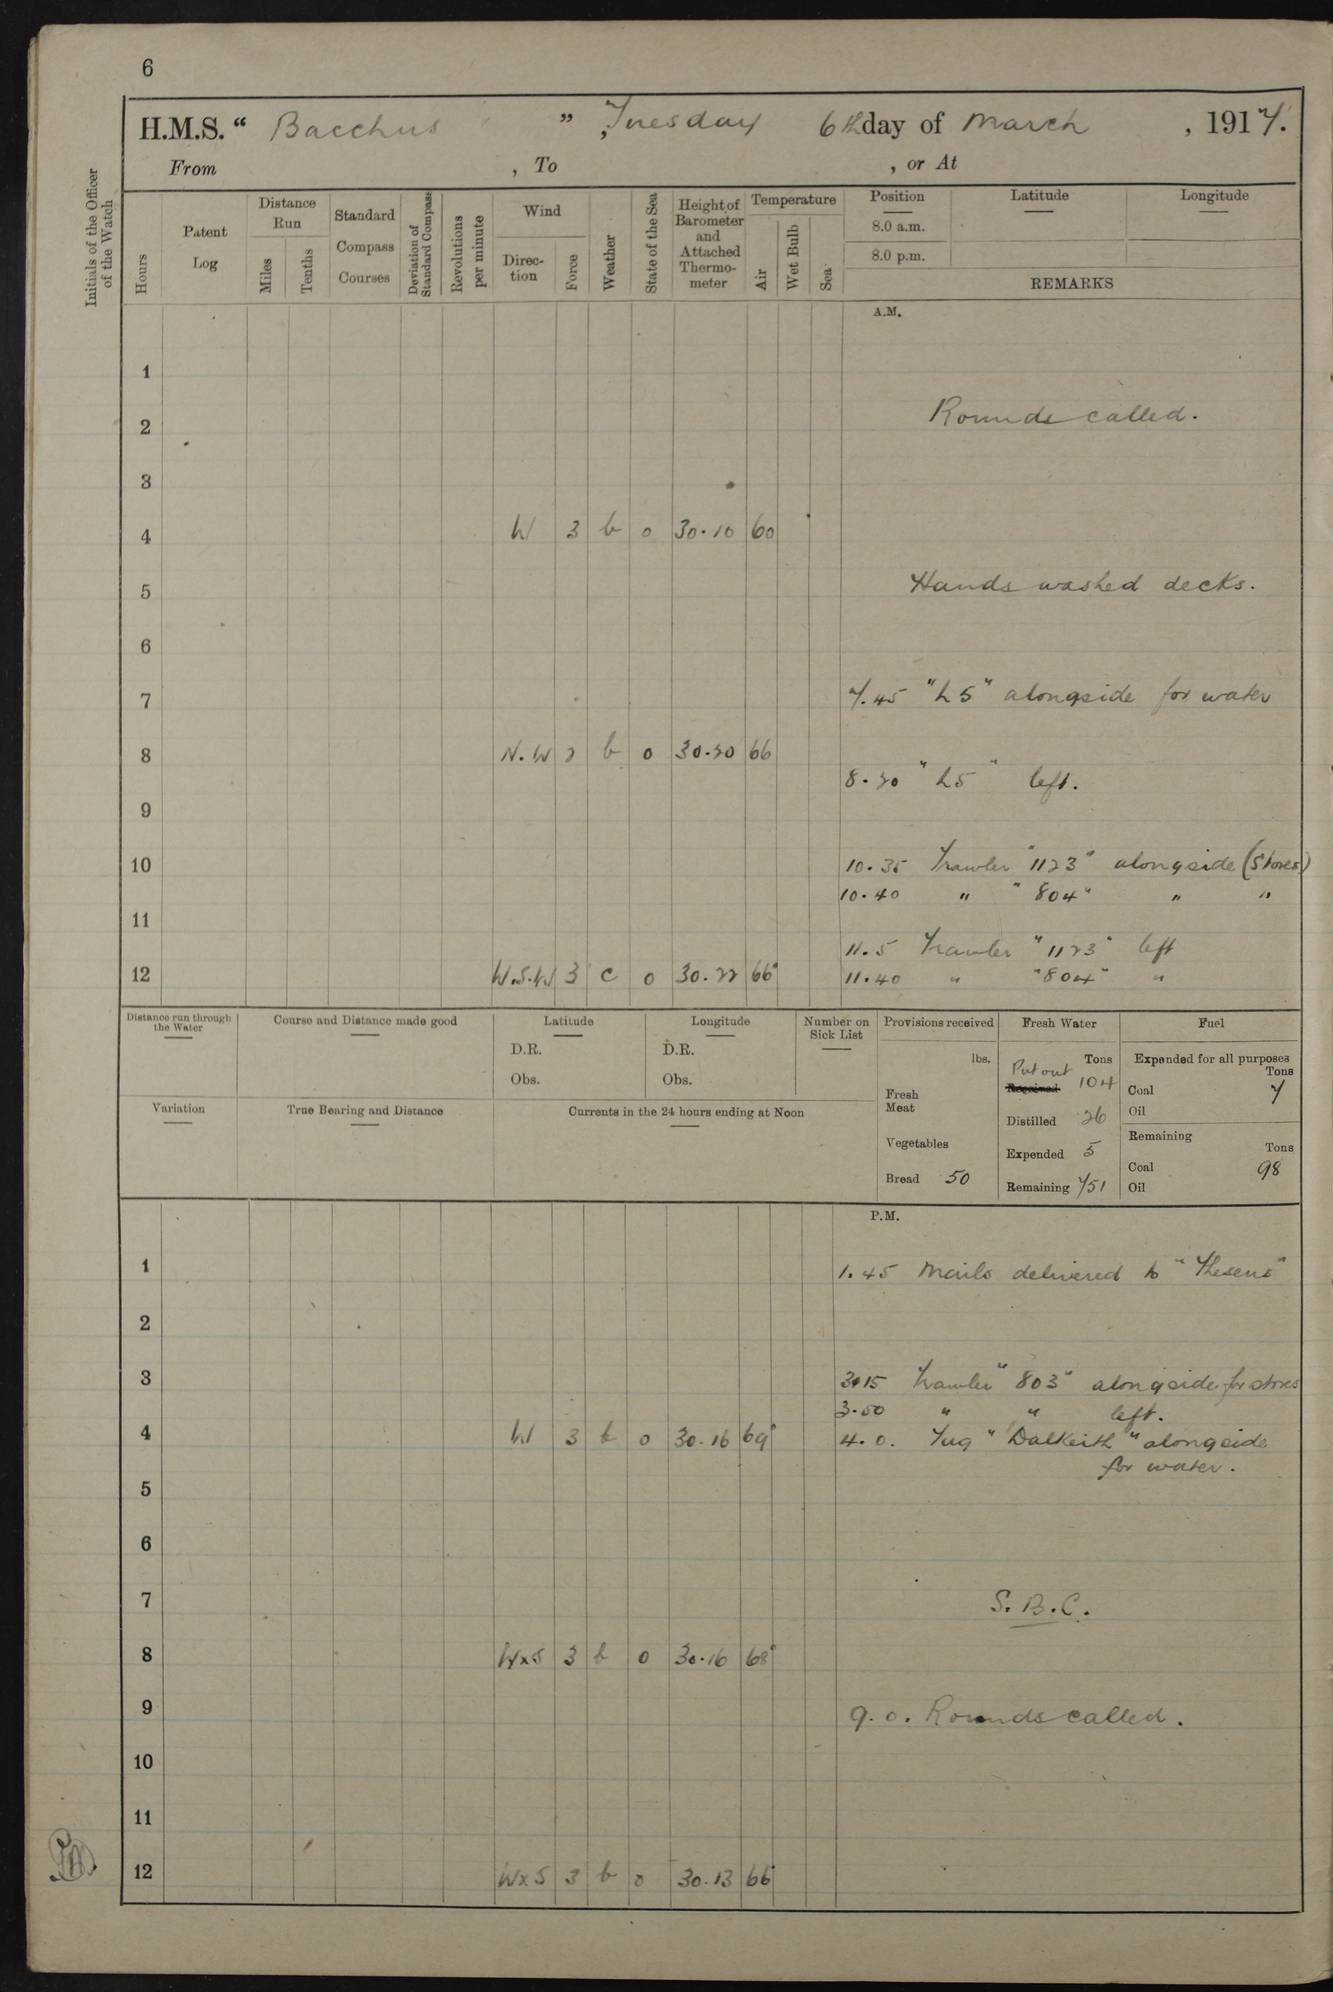 6
H.M.S. “ Bacchus ” , Tuesday 6th day of March , 1917.
From , To , or At
Initials of the Officer of the Watch
Hours
Patent Log
Distance Run
Miles
Tenths
Standard Compass Courses
Deviation of Standard Compass
Revolutions per minute
Wind
Direction
Force
Weather
State of the Sea
Height of Barometer and Attached Thermometer
Temperature
Air
Wet Bulb
Sea
Position Latitude Longitude
8.0 a.m.
8.0 p.m.
REMARKS
A.M.
1
2 Rounds called.
3
4 W 3 b 0 30.10 60
5 Hands washed decks.
6
7 7.45 "L5" alongside for water
8 N.W 2 b 0 30.20 66
8.20 "L5" left.
9
10 10.35 Trawler "1123" alongside (Stores)
10.40 " "804" " "
11
11.5 Trawler "1123" left
12 W.S.W 3 c 0 30.22 66° 11.40 " "804" "
Distance run through the Water
Course and Distance made good
Latitude
D.R.
Obs.
Longitude
D.R.
Obs.
Number on Sick List
Provisions received
lbs.
Fresh Meat
Vegetables
Bread 50
Fresh Water
Tons
Put out
Received 104
Distilled 26
Expended 5
Remaining 751
Fuel
Expended for all purposes
Tons
Coal 7
Oil
Remaining
Tons
Coal 98
Oil
Variation
True Bearing and Distance
Currents in the 24 hours ending at Noon
P.M.
1 1.45 Mails delivered to "Theseus"
2
3 3.15 Trawler "803" alongside for stores
3.50 " " left.
4 W 3 b 0 30.16 69° 4.0. Tug "Dalkeith" alongside
for water.
5
6
7 S.B.C.
8 WxS 3 b 0 30.16 68°
9 9.0. Rounds called.
10
11
12 WxS 3 b 0 30.13 66